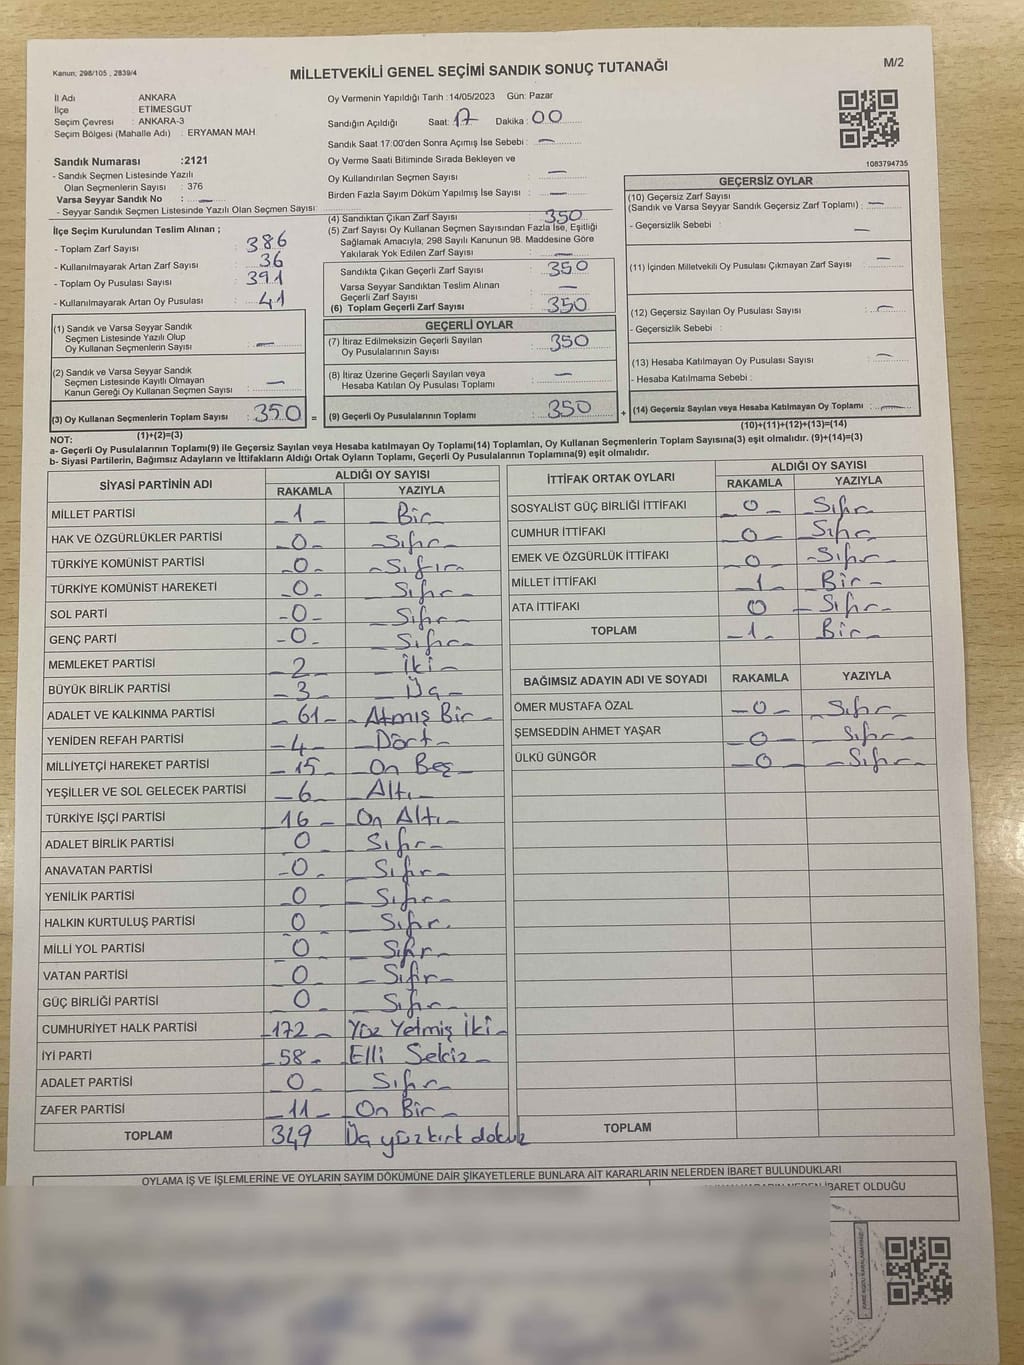 Kanun: 298/105 , 2839/4
MİLLETVEKİLİ GENEL SEÇİMİ SANDIK SONUÇ TUTANAĞI
M/2
İl Adı : ANKARA
İlçe : ETİMESGUT
Seçim Çevresi : ANKARA-3
Seçim Bölgesi (Mahalle Adı) : ERYAMAN MAH
Sandık Numarası :2121
- Sandık Seçmen Listesinde Yazılı
Olan Seçmenlerin Sayısı : 376
Varsa Seyyar Sandık No : —
- Seyyar Sandık Seçmen Listesinde Yazılı Olan Seçmen Sayısı:
İlçe Seçim Kurulundan Teslim Alınan ;
- Toplam Zarf Sayısı : 386
- Kullanılmayarak Artan Zarf Sayısı : 36
- Toplam Oy Pusulası Sayısı : 391
- Kullanılmayarak Artan Oy Pusulası : 41
(1) Sandık ve Varsa Seyyar Sandık
Seçmen Listesinde Yazılı Olup
Oy Kullanan Seçmenlerin Sayısı : —
(2) Sandık ve Varsa Seyyar Sandık
Seçmen Listesinde Kayıtlı Olmayan
Kanun Gereği Oy Kullanan Seçmen Sayısı : —
(3) Oy Kullanan Seçmenlerin Toplam Sayısı : 350 =
(1)+(2)=(3)
Oy Vermenin Yapıldığı Tarih :14/05/2023 Gün: Pazar
Sandığın Açıldığı Saat: 17 Dakika : 00
Sandık Saat 17:00'den Sonra Açımış İse Sebebi : —
Oy Verme Saati Bitiminde Sırada Bekleyen ve
Oy Kullandırılan Seçmen Sayısı : —
Birden Fazla Sayım Döküm Yapılmış İse Sayısı : —
(4) Sandıktan Çıkan Zarf Sayısı : 350
(5) Zarf Sayısı Oy Kullanan Seçmen Sayısından Fazla İse, Eşitliği
Sağlamak Amacıyla; 298 Sayılı Kanunun 98. Maddesine Göre
Yakılarak Yok Edilen Zarf Sayısı : —
Sandıkta Çıkan Geçerli Zarf Sayısı : 350
Varsa Seyyar Sandıktan Teslim Alınan
Geçerli Zarf Sayısı : —
(6) Toplam Geçerli Zarf Sayısı : 350
GEÇERLİ OYLAR
(7) İtiraz Edilmeksizin Geçerli Sayılan
Oy Pusulalarının Sayısı : 350
(8) İtiraz Üzerine Geçerli Sayılan veya
Hesaba Katılan Oy Pusulası Toplamı : —
(9) Geçerli Oy Pusulalarının Toplamı : 350 +
1083794735
GEÇERSİZ OYLAR
(10) Geçersiz Zarf Sayısı
(Sandık ve Varsa Seyyar Sandık Geçersiz Zarf Toplamı) : —
- Geçersizlik Sebebi : —
(11) İçinden Milletvekili Oy Pusulası Çıkmayan Zarf Sayısı : —
(12) Geçersiz Sayılan Oy Pusulası Sayısı : —
- Geçersizlik Sebebi :
(13) Hesaba Katılmayan Oy Pusulası Sayısı : —
- Hesaba Katılmama Sebebi :
(14) Geçersiz Sayılan veya Hesaba Katılmayan Oy Toplamı : —
(10)+(11)+(12)+(13)=(14)
NOT:
a- Geçerli Oy Pusulalarının Toplamı(9) ile Geçersiz Sayılan veya Hesaba katılmayan Oy Toplamı(14) Toplamları, Oy Kullanan Seçmenlerin Toplam Sayısına(3) eşit olmalıdır. (9)+(14)=(3)
b- Siyasi Partilerin, Bağımsız Adayların ve İttifakların Aldığı Ortak Oyların Toplamı, Geçerli Oy Pusulalarının Toplamına(9) eşit olmalıdır.
SİYASİ PARTİNİN ADI ALDIĞI OY SAYISI
RAKAMLA YAZIYLA
MİLLET PARTİSİ –1– – Bir
HAK VE ÖZGÜRLÜKLER PARTİSİ –0– –Sıfır–
TÜRKİYE KOMÜNİST PARTİSİ –0– –Sıfır
TÜRKİYE KOMÜNİST HAREKETİ –0– – Sıfır–
SOL PARTİ –0– – Sıfır–
GENÇ PARTİ –0– – Sıfır–
MEMLEKET PARTİSİ –2– – İki –
BÜYÜK BİRLİK PARTİSİ –3– – Üç –
ADALET VE KALKINMA PARTİSİ –61– – Atmış Bir –
YENİDEN REFAH PARTİSİ –4– –Dört–
MİLLİYETÇİ HAREKET PARTİSİ –15– –On Beş–
YEŞİLLER VE SOL GELECEK PARTİSİ –6– –Altı–
TÜRKİYE İŞÇİ PARTİSİ 16– –On Altı–
ADALET BİRLİK PARTİSİ 0 – Sıfır–
ANAVATAN PARTİSİ –0– – Sıfır–
YENİLİK PARTİSİ 0 – Sıfır–
HALKIN KURTULUŞ PARTİSİ 0 – Sıfır.
MİLLİ YOL PARTİSİ 0 – Sıfır–
VATAN PARTİSİ 0 – Sıfır–
GÜÇ BİRLİĞİ PARTİSİ 0 – Sıfır–
CUMHURİYET HALK PARTİSİ –172– Yüz Yetmiş İki–
İYİ PARTİ –58– Elli Sekiz –
ADALET PARTİSİ –0– – Sıfır–
ZAFER PARTİSİ –11– –On Bir –
TOPLAM 349 Üç yüz kırk dokuz
İTTİFAK ORTAK OYLARI ALDIĞI OY SAYISI
RAKAMLA YAZIYLA
SOSYALİST GÜÇ BİRLİĞİ İTTİFAKI –0– –Sıfır
CUMHUR İTTİFAKI –0– –Sıfır
EMEK VE ÖZGÜRLÜK İTTİFAKI –0– –Sıfır–
MİLLET İTTİFAKI –1– – Bir–
ATA İTTİFAKI 0 – Sıfır–
TOPLAM –1– Bir–
BAĞIMSIZ ADAYIN ADI VE SOYADI RAKAMLA YAZIYLA
ÖMER MUSTAFA ÖZAL –0– –Sıfır–
ŞEMSEDDİN AHMET YAŞAR –0– – Sıfır–
ÜLKÜ GÜNGÖR –0– –Sıfır–
TOPLAM
OYLAMA İŞ VE İŞLEMLERİNE VE OYLARIN SAYIM DÖKÜMÜNE DAİR ŞİKAYETLERLE BUNLARA AİT KARARLARIN NELERDEN İBARET BULUNDUKLARI
İBARET OLDUĞU